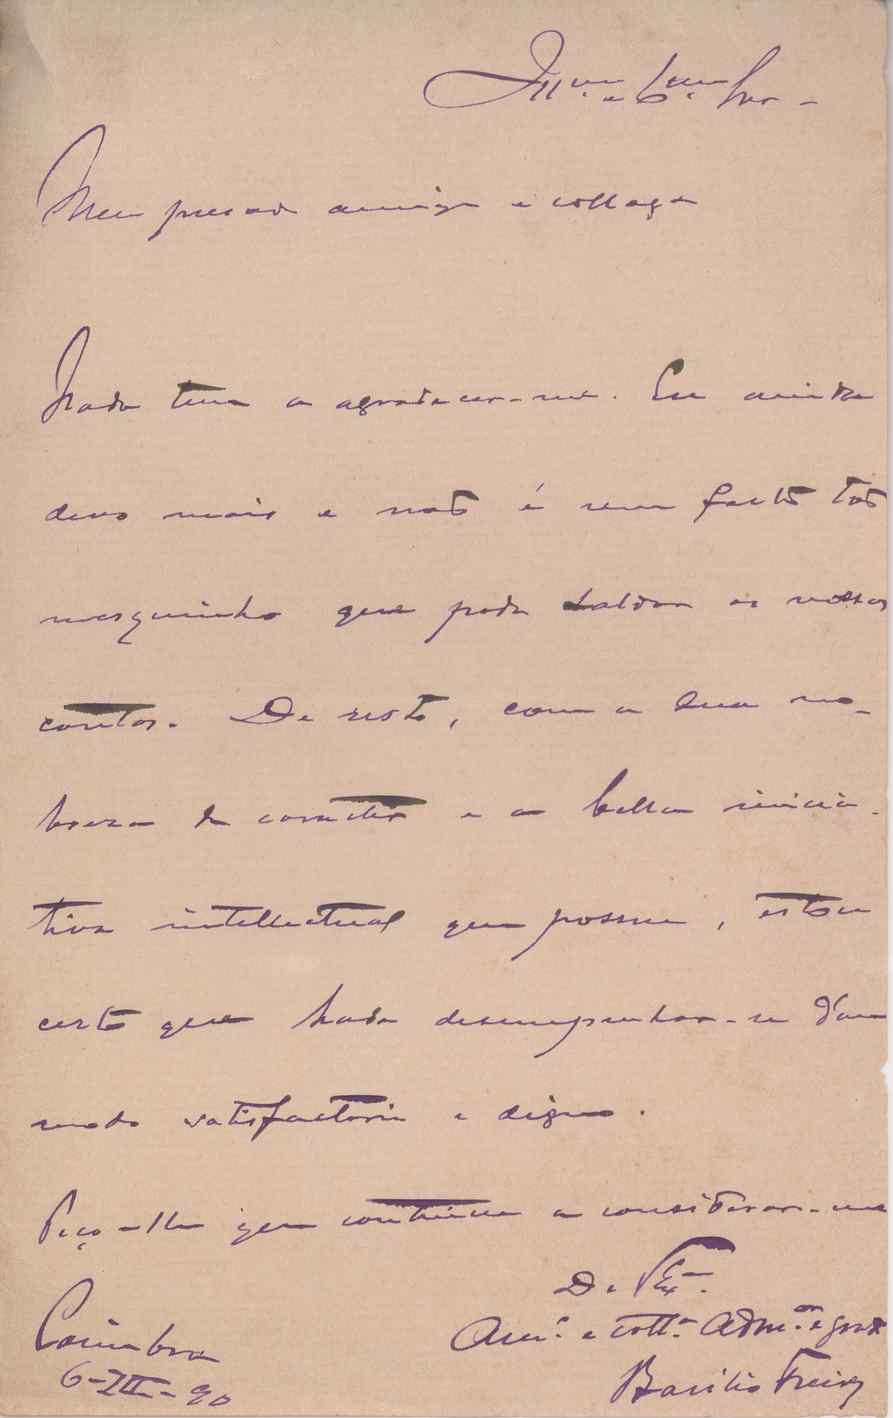 Ill.mo e Ex.mo Snr.
Meu presado amigo e collega
Nada tem a agradecer-me. Eu ainda
devo mais e não é um facto tão
mesquinho que póde saldar as nossas
contas. De resto, com a sua no-
breza de caracter e a bella inicia-
tiva intellectual que possue, estou
certo que hade desempenhar-se d'um
modo satisfactorio e digno.
Peço-lhe que continue a considerar-me
De V. Ex.ª
Am.º e coll.ª adm.or e grato
Coimbra
6-III-90
Basilio Freire